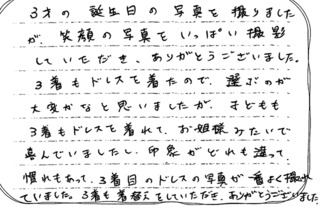 3才の誕生日の写真を撮りました
が、笑顔の写真をいっぱい撮影
していただき、ありがとうございました。
3着もドレスを着たので、選ぶのが
大変かなと思いましたが、子どもも
3着もドレスを着れて、お姫様みたいで
喜んでいましたし、印象がどれも違って
慣れもあって、3着目のドレスの写真が一番よく撮れ
ていました。3着も着替えをしていただき、ありがとうございました